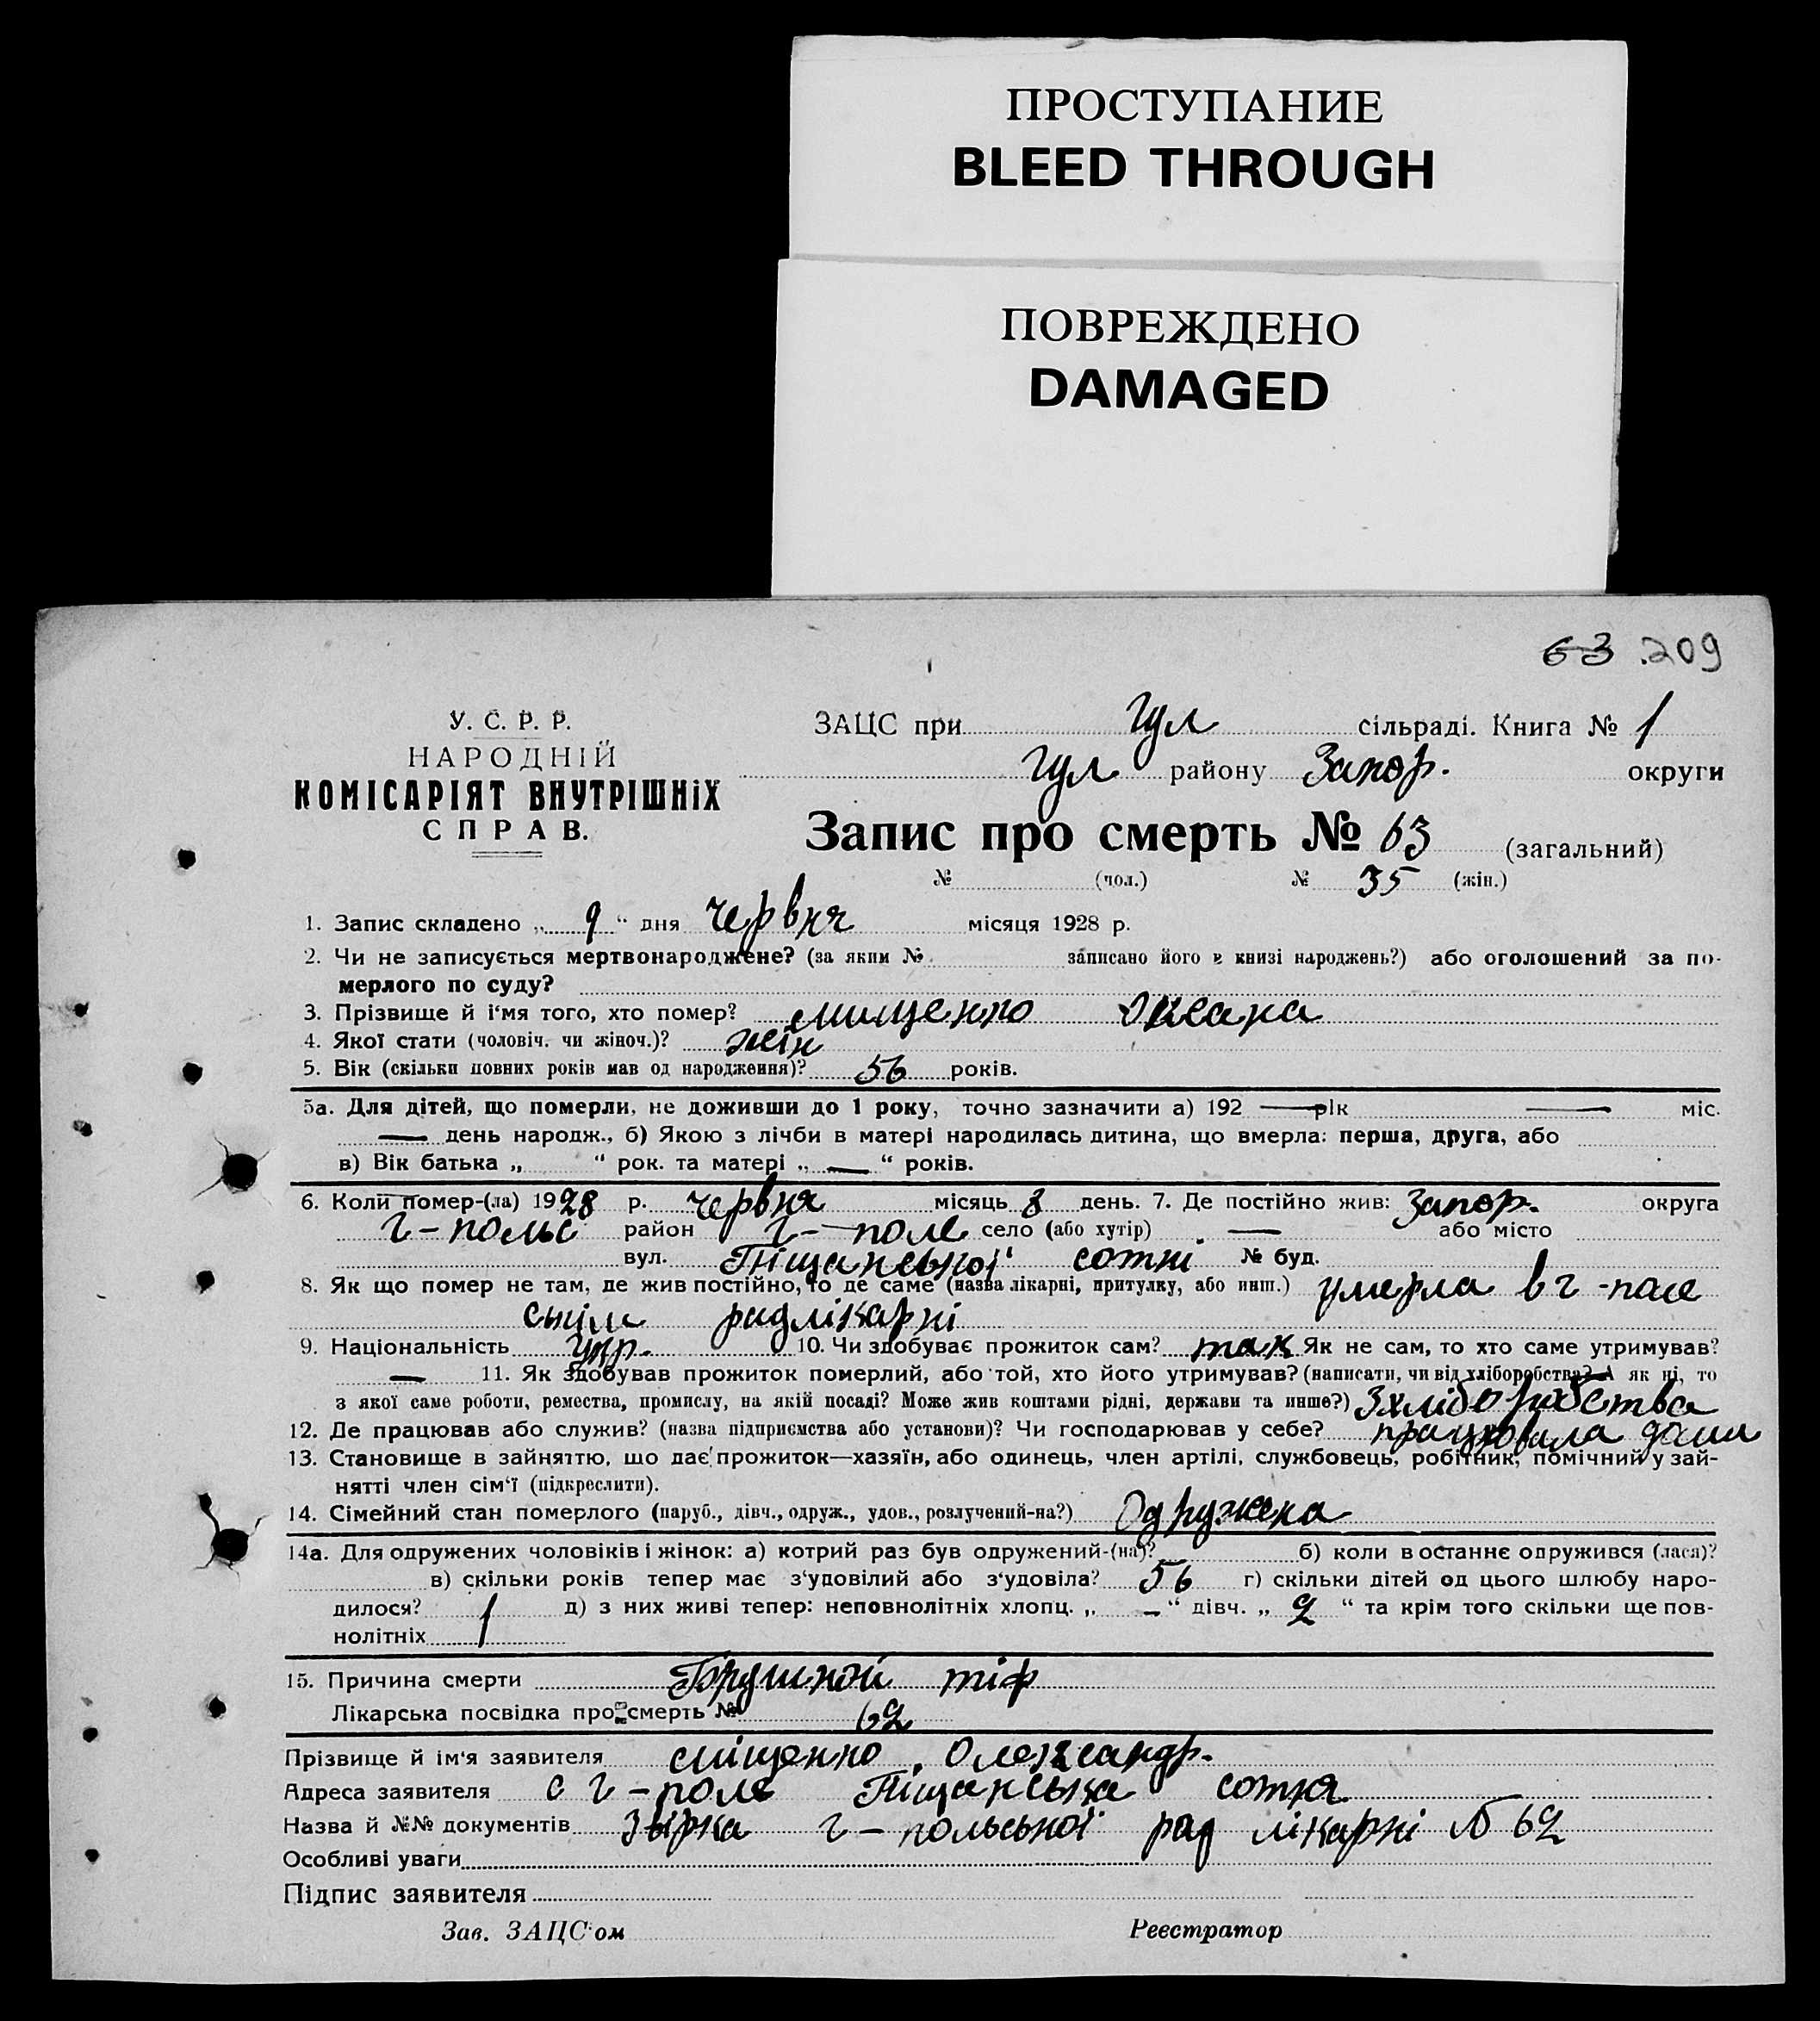 ПРОСТУПАНИЕ
BLEED THROUGH
ПОВРЕЖДЕНО
DAMAGED
63 209
У. С. Р. Р.
НАРОДНІЙ
КОМІСАРІЯТ ВНУТРІШНІХ
СПРАВ.
ЗАЦС при Гул сільраді. Книга № 1
Гул району Запор. округи
Запис про смерть № 63 (загальний)
№ (чол.) № 35 (жін.)
1. Запис складено „ 9 “ дня червня місяця 1928 р.
2. Чи не записується мертвонароджене? (за яким № записано його в книзі народжень?) або оголошений за по-
мерлого по суду?
3. Прізвище й і‘мя того, хто помер? Мищенко Оксана
4. Якої стати (чоловіч. чи жіноч.)? жін
5. Вік (скільки повних років мав од народження)? 56 років.
5а. Для дітей, що померли, не доживши до 1 року, точно зазначити а) 192 — рік — міс.
— день народж., б) Якою з лічби в матері народилась дитина, що вмерла: перша, друга, або
в) Вік батька „ “ рок. та матері „ — “ років.
6. Коли помер-(ла) 1928 р. червня місяць 8 день. 7. Де постійно жив: Запор. округа
Г-польс район Г-поле село (або хутір) — або місто
вул. Піщанської сотні № буд.
8. Як що помер не там, де жив постійно, то де саме (назва лікарні, притулку, або инш.) умерла в г-поле
радлікарні
9. Національність укр. 10. Чи здобуває прожиток сам? так Як не сам, то хто саме утримував?
— 11. Як здобував прожиток померлий, або той, хто його утримував? (написати, чи від хліборобства? А як ні, то
з якої саме роботи, ремества, промислу, на якій посаді? Може жив коштами рідні, держави та инше?) З хліборобства
12. Де працював або служив? (назва підприємства або установи)? Чи господарював у себе? працювала дома
13. Становище в зайняттю, що дає прожиток—хазяїн, або одинець, член артілі, службовець, робітник, помічний у зай-
нятті член сім‘ї (підкреслити).
14. Сімейний стан померлого (паруб., дівч., одруж., удов., розлучений-на?) Одружена
14а. Для одружених чоловіків і жінок: а) котрий раз був одружений-(на)? б) коли в останнє опружився (лася)?
в) скільки років тепер має з‘удовілий або з‘удовіла? 56 г) скільки дітей од цього шлюбу наро-
дилося? 1 д) з них живі тепер: неповнолітніх хлопц. „ – “ дівч. „ 2 “ та крім того скільки ще пов-
нолітніх 1
15. Причина смерти Брушной тіф
Лікарська посвідка про смерть № 62
Прізвище й ім‘я заявителя Міщенко Олександр.
Адреса заявителя с Г-поле Піщанська сотня
Назва й №№ документів Звірка Г-польської рад лікарні № 62
Особливі уваги
Підпис заявителя
Зав. ЗАЦС‘ом Реєстратор